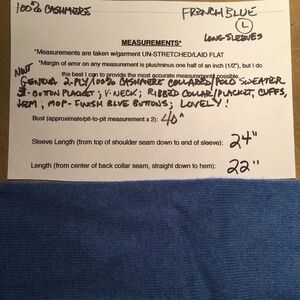 100% CASHMERE FRENCH BLUE
L
LONG-SLEEVES
MEASUREMENTS*
*Measurements are taken w/garment UN-STRETCHED/LAID FLAT
*Margin of error on any measurement is plus/minus one half of an inch (1/2"), but I do
the best I can to provide the most accurate measurement possible.
NWT
GENEVA 2-PLY/100% CASHMERE COLLARED/POLO SWEATER
3-BUTTON PLACKET; V-NECK; RIBBED COLLAR/PLACKET, CUFFS,
HEM; MOP-FINISH BLUE BUTTONS; LOVELY!
Bust (armpit/pit-to-pit measurement x 2): 40"
Sleeve Length (from top of shoulder seam down to end of sleeve): 24"
Length (from center of back collar seam, straight down to hem): 22"